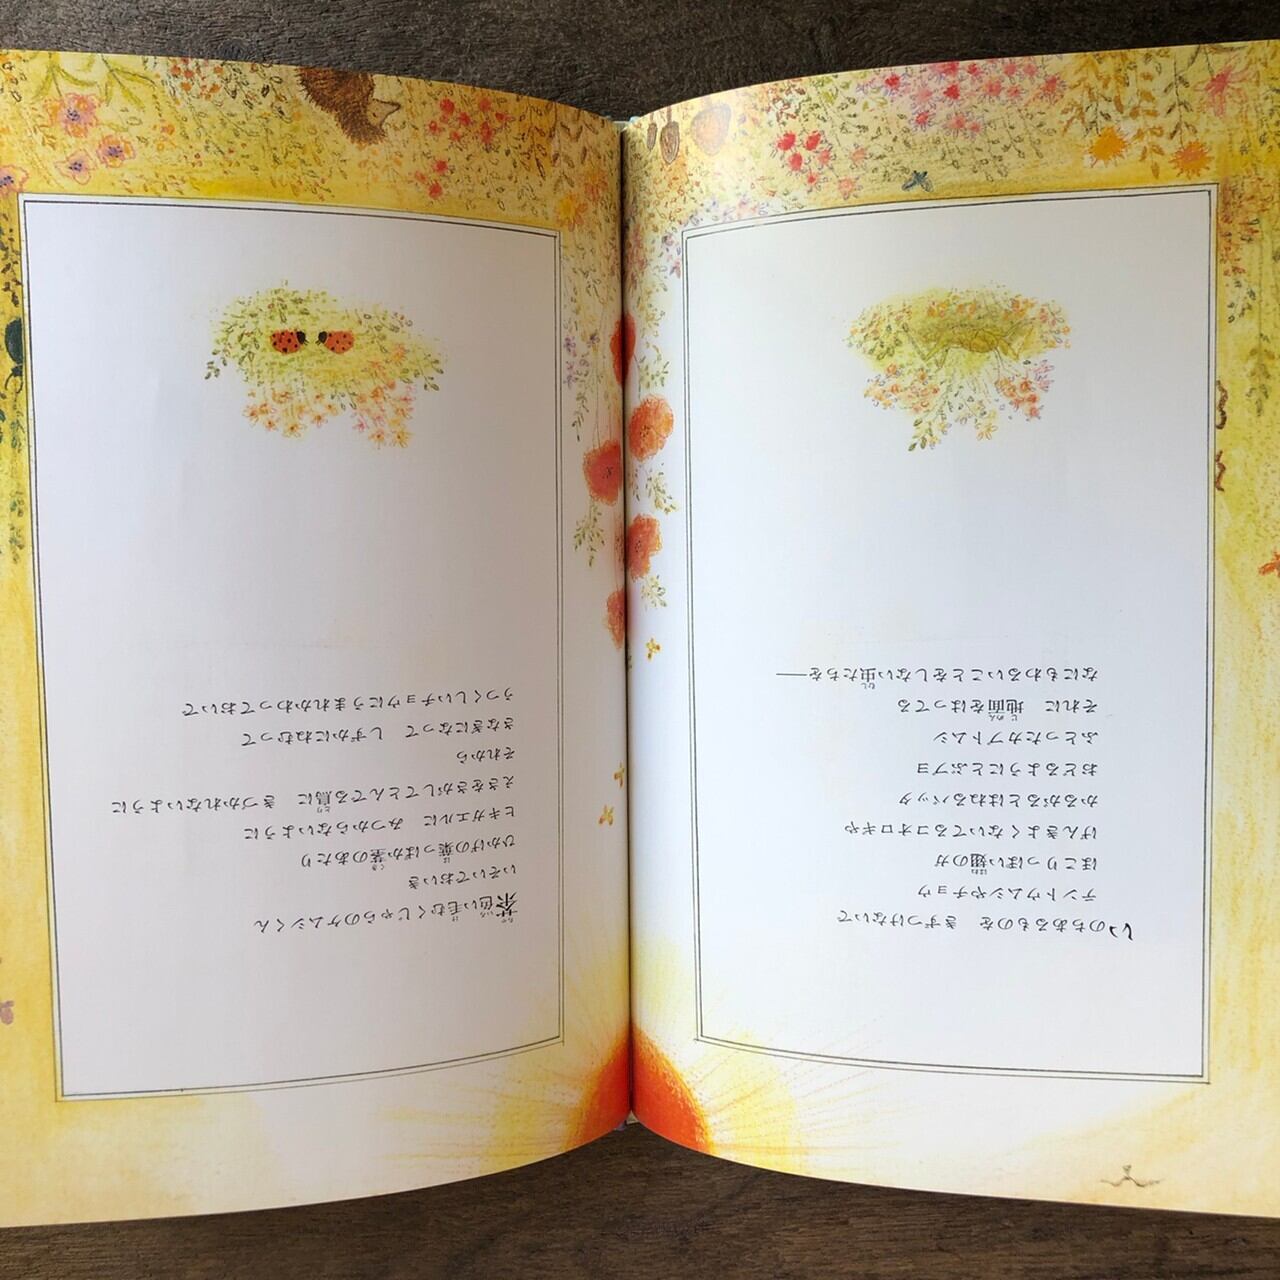 いのちあるものを　きずつけないで
テントウムシやチョウ
ほこりっぽい翅のガ
げんきよくないてるコオロギや
かるがるとはねるバッタ
おどるようにとぶブヨ
ふとったカブトムシ
それに　地面をはってる
なにもわるいことをしない虫たちを――
茶色い毛むくじゃらのケムシくん
いそいでおいき
ひかげの葉っぱか茎のあたり
ヒキガエルに　みつからないように
えさをさがしてとんでる鳥に　きづかれないように
それから
さなぎになって　しずかにねむって
うつくしいチョウにうまれかわっておいで